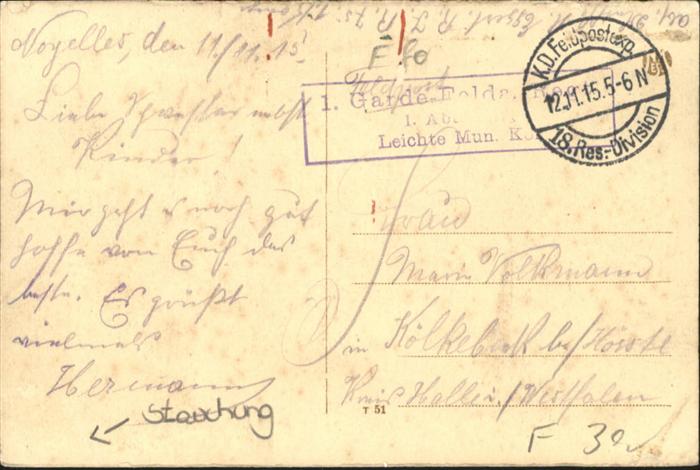 Noyelles, den 11./11.15!
Liebe Schwester nebst
Kinder!
Mir geht es noch gut
hoffe von Euch das
beste. Es grüßt
vielmals
Hermann
Stauchung
F fo
Feldpost
1. Garde-Felda.
1. Ab
Leichte Mun. Ko
K.D. Feldpostexp.
12.11.15.5-6N
18. Res.-Division
Frau
Marie Volkmann
in Kölkebeck bei Hörste
Kreis Halle i./Westfalen
T 51
F 30